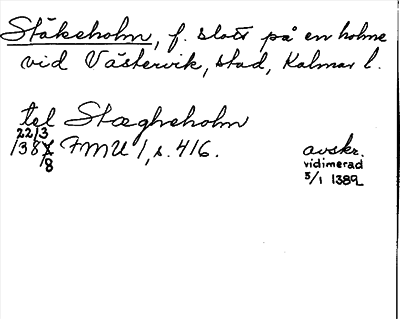 Stäkeholm, f. slott på en holme
vid Västervik, stad, Kalmar l.
tel Stægheholm
22/3
138 7/8 FMU 1, s. 416.
avskr.
vidimerad
5/1 1389